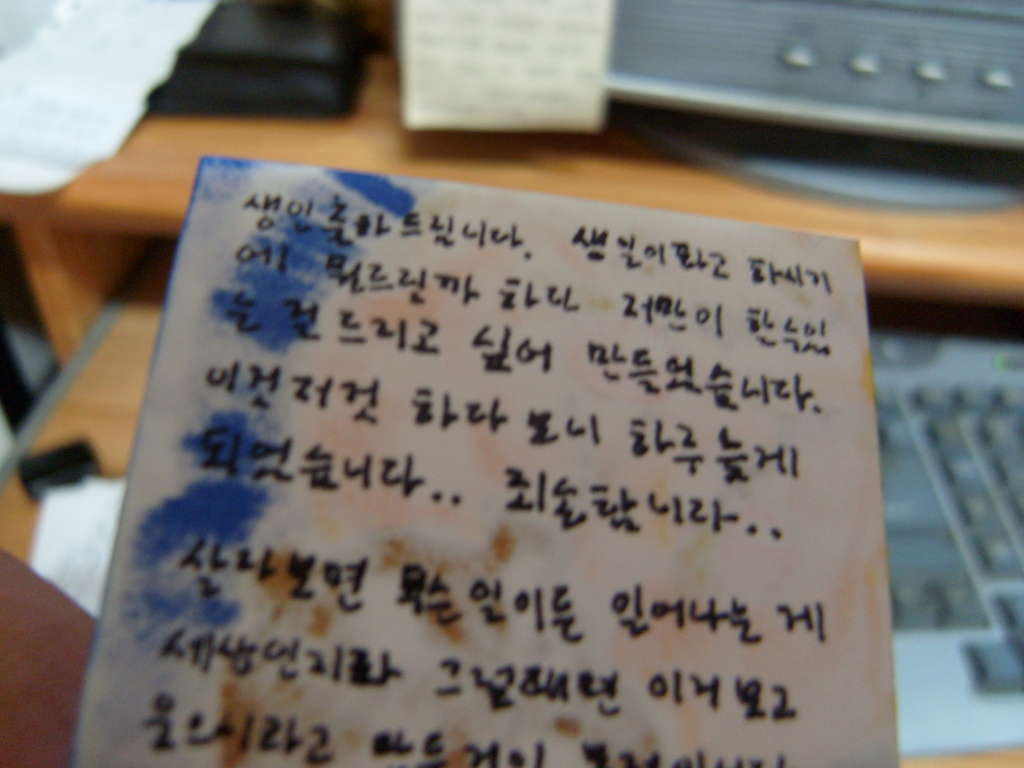 생일축하드립니다. 생일이라고 하시기
에 뭘드릴까 하다 저만이 할수있
는 걸 드리고 싶어 만들었습니다.
이것저것 하다 보니 하루 늦게
되었습니다.. 죄송합니다..
살다보면 무슨일이든 일어나는 게
세상인지라 그럴때면 이거 보고
웃으시라고 만든것이